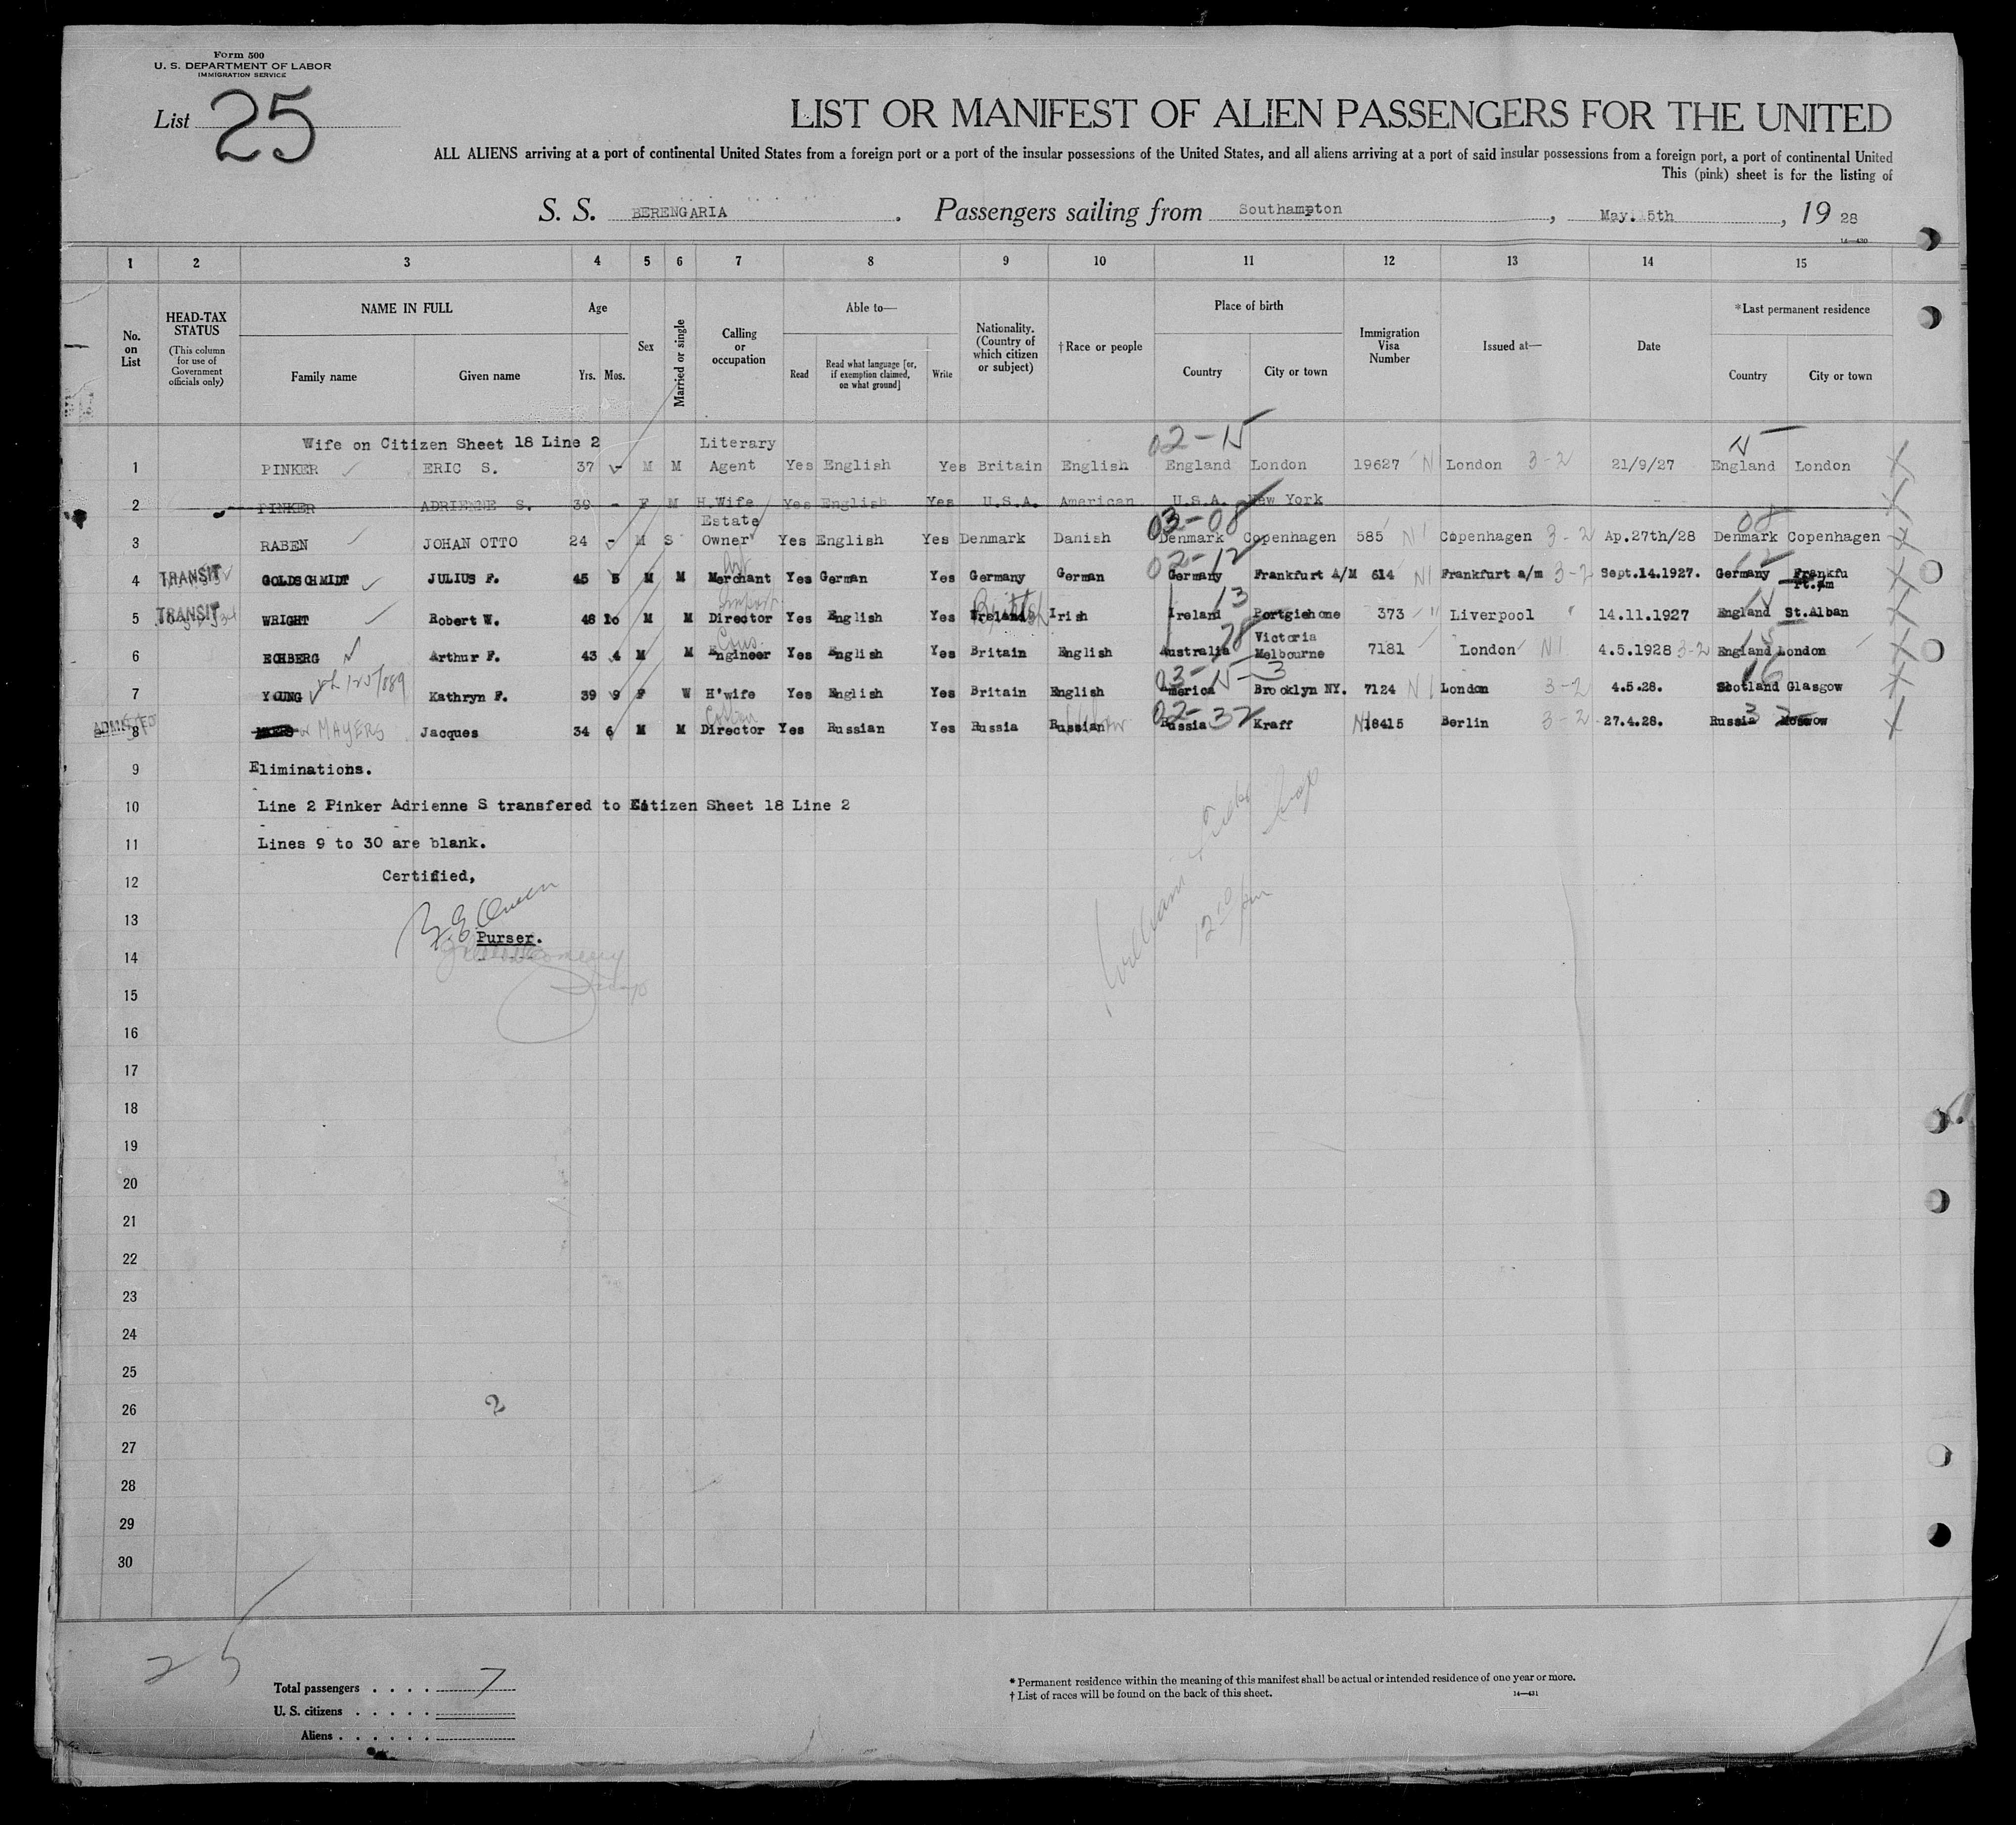 Form 500
U. S. DEPARTMENT OF LABOR
IMMIGRATION SERVICE
List 25
LIST OR MANIFEST OF ALIEN PASSENGERS FOR THE UNITED
ALL ALIENS arriving at a port of continental United States from a foreign port or a port of the insular possessions of the United States, and all aliens arriving at a port of said insular possessions from a foreign port, a port of continental United
This (pink) sheet is for the listing of
S. S. BERENGARIA . Passengers sailing from Southampton , May. 5th , 19 28
14—430
1 2 3 4 5 6 7 8 9 10 11 12 13 14 15
No. on List
HEAD-TAX STATUS
(This column for use of Government officials only)
NAME IN FULL
Family name Given name
Age
Yrs. Mos.
Sex
Married or single
Calling or occupation
Able to—
Read
Read what language [or, if exemption claimed, on what ground]
Write
Nationality. (Country of which citizen or subject)
†Race or people
Place of birth
Country City or town
Immigration Visa Number
Issued at—
Date
*Last permanent residence
Country City or town
Wife on Citizen Sheet 18 Line 2 Literary 02-15 15
1 PINKER ERIC S. 37 - M M Agent Yes English Yes Britain English England London 19627 N1 London 3-2 21/9/27 England London
2 PINKER ADRIENNE S. 39 - F M H.Wife Yes English Yes U.S.A. American U.S.A. New York
Estate 03-08 08
3 RABEN JOHAN OTTO 24 - M S Owner Yes English Yes Denmark Danish Denmark Copenhagen 585 N1 Copenhagen 3-2 Ap.27th/28 Denmark Copenhagen
Art 02-12 12
4 TRANSIT GOLDSCHMIDT JULIUS F. 45 5 M M Merchant Yes German Yes Germany German Germany Frankfurt A/M 614 N1 Frankfurt a/m 3-2 Sept.14.1927. Germany Frankfu
rt.Am
Import British 13
5 TRANSIT WRIGHT Robert W. 48 10 M M Director Yes English Yes Ireland Irish Ireland Portgiehone 373 " Liverpool " 14.11.1927 England St.Alban
Cons. 78 Victoria 15
6 ECHBERG Arthur F. 43 4 M M Engineer Yes English Yes Britain English Australia Melbourne 7181 London N1 4.5.1928 3-2 England London
03-15-3 16
7 YOUNG Kathryn F. 39 9 F W H'wife Yes English Yes Britain English America Brooklyn NY. 7124 N1 London 3-2 4.5.28. Scotland Glasgow
Cotton 02-32 32
ADMITTED 8 MAYERS Jacques 34 6 M M Director Yes Russian Yes Russia Russian Russia Kraff N1 18415 Berlin 3-2 27.4.28. Russia Moscow
9 Eliminations.
10 Line 2 Pinker Adrienne S transfered to Citizen Sheet 18 Line 2
11 Lines 9 to 30 are blank.
12 Certified,
13
Purser.
14
15
16
17
18
19
20
21
22
23
24
25
26 2
27
28
29
30
25
Total passengers . . . . 7
U. S. citizens . . . . .
Aliens . . . . . .
* Permanent residence within the meaning of this manifest shall be actual or intended residence of one year or more.
† List of races will be found on the back of this sheet.
14—431